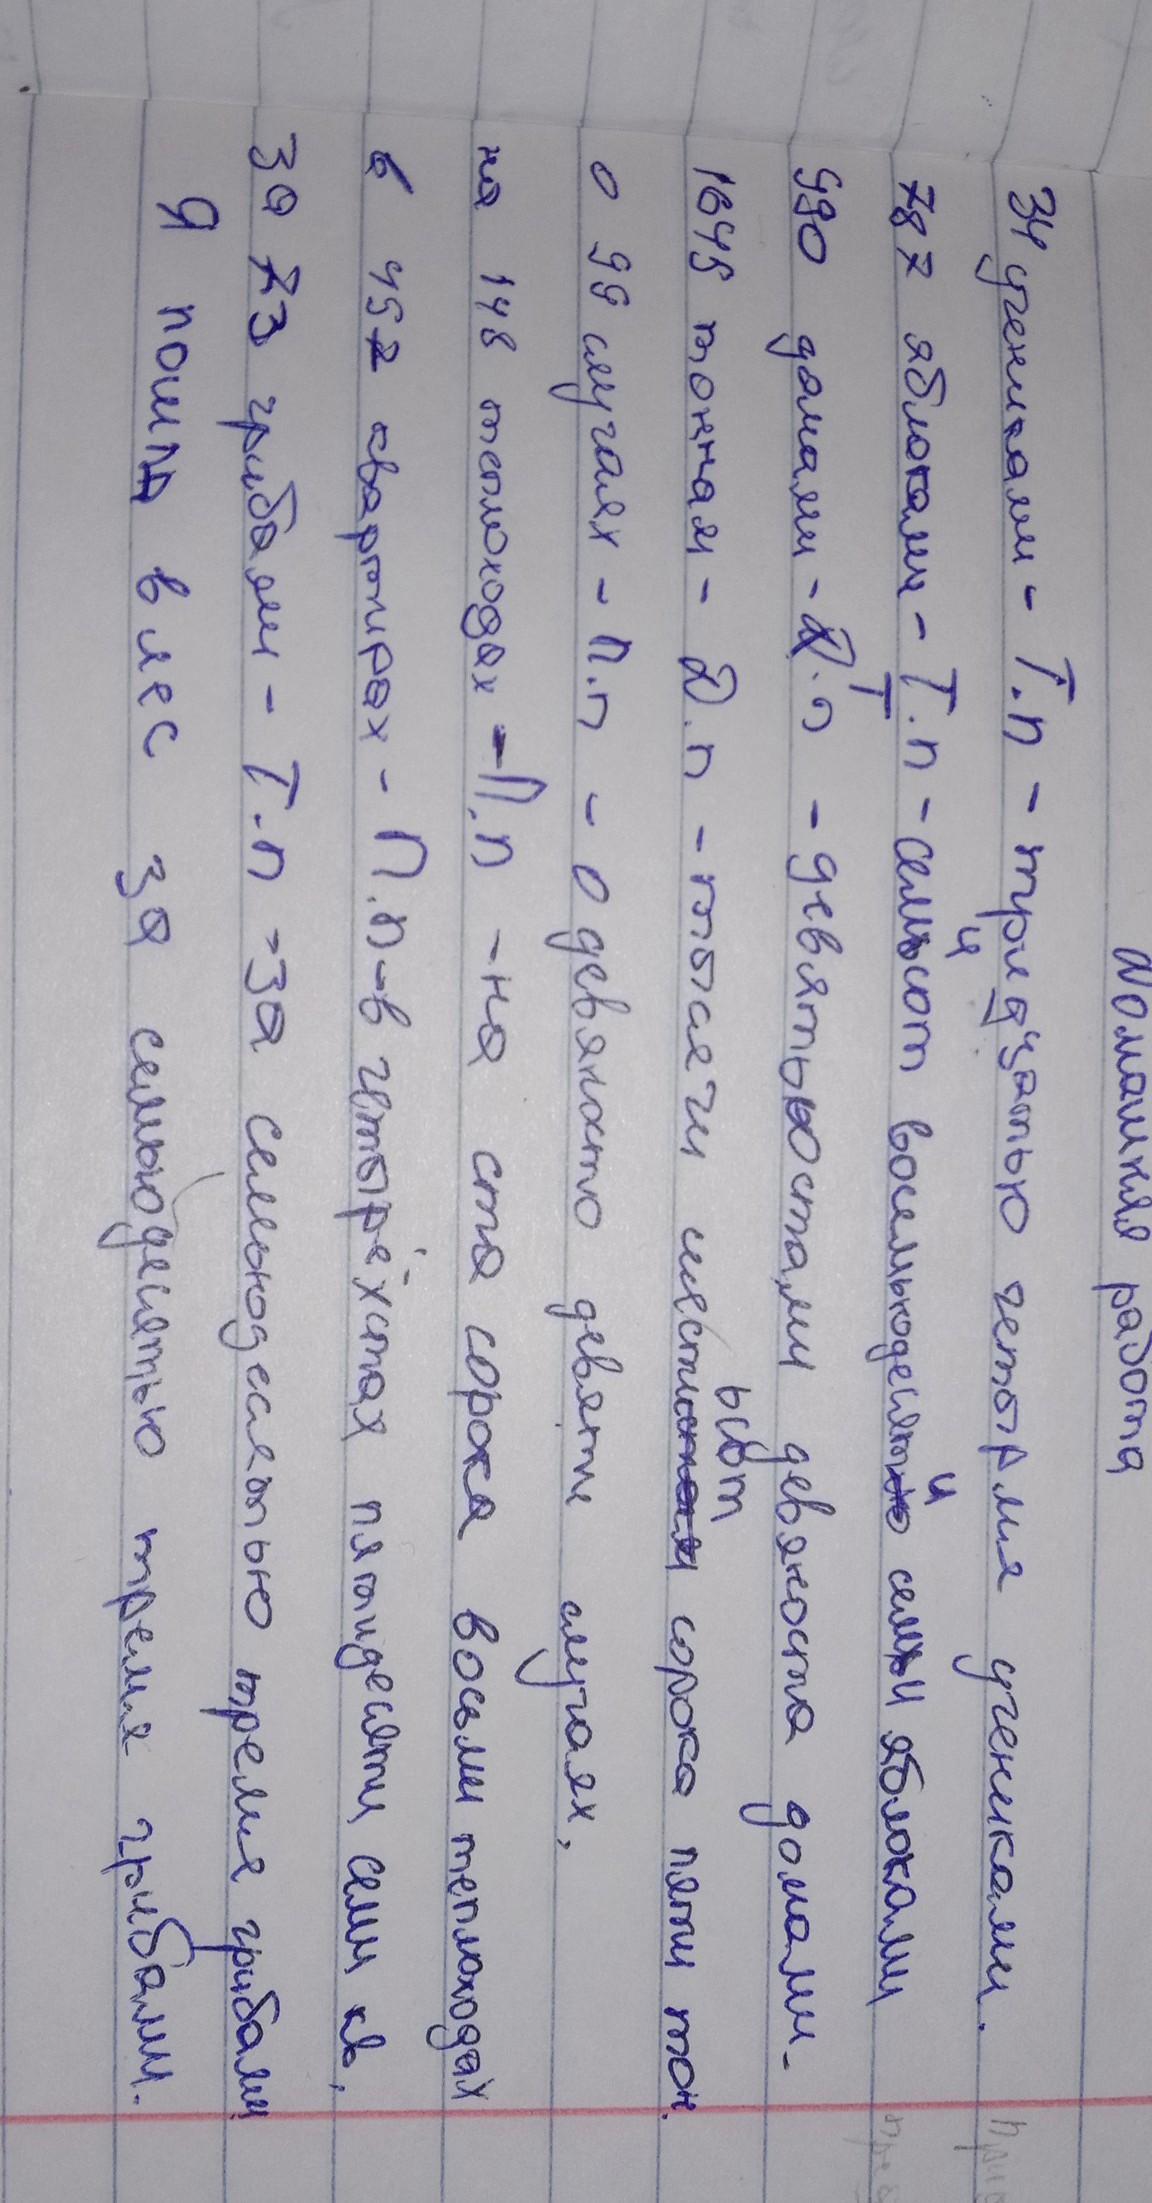 Домашняя работа
34 учениками - Т.п - тридцатью четырмя учениками.
787 яблоками - Т.п - семисот восемьюдесяти семи яблоками
990 домами - Т.п - девятьюостами девяноста домами.
1645 тоннам - Д.п - тысячи шестьсот сорока пяти тон.
о 99 случаях - П.п - о девяносто девяти случаях,
на 148 теплоходах - П.п - на ста сорока восьми теплоходах
в 457 квартирах - П.п - в четырёхстах пятидесяти семи кв,
за 73 грибами - Т.п - за семьюдесятью тремя грибами
Я пошла в лес за семьюдесятью тремя грибами.